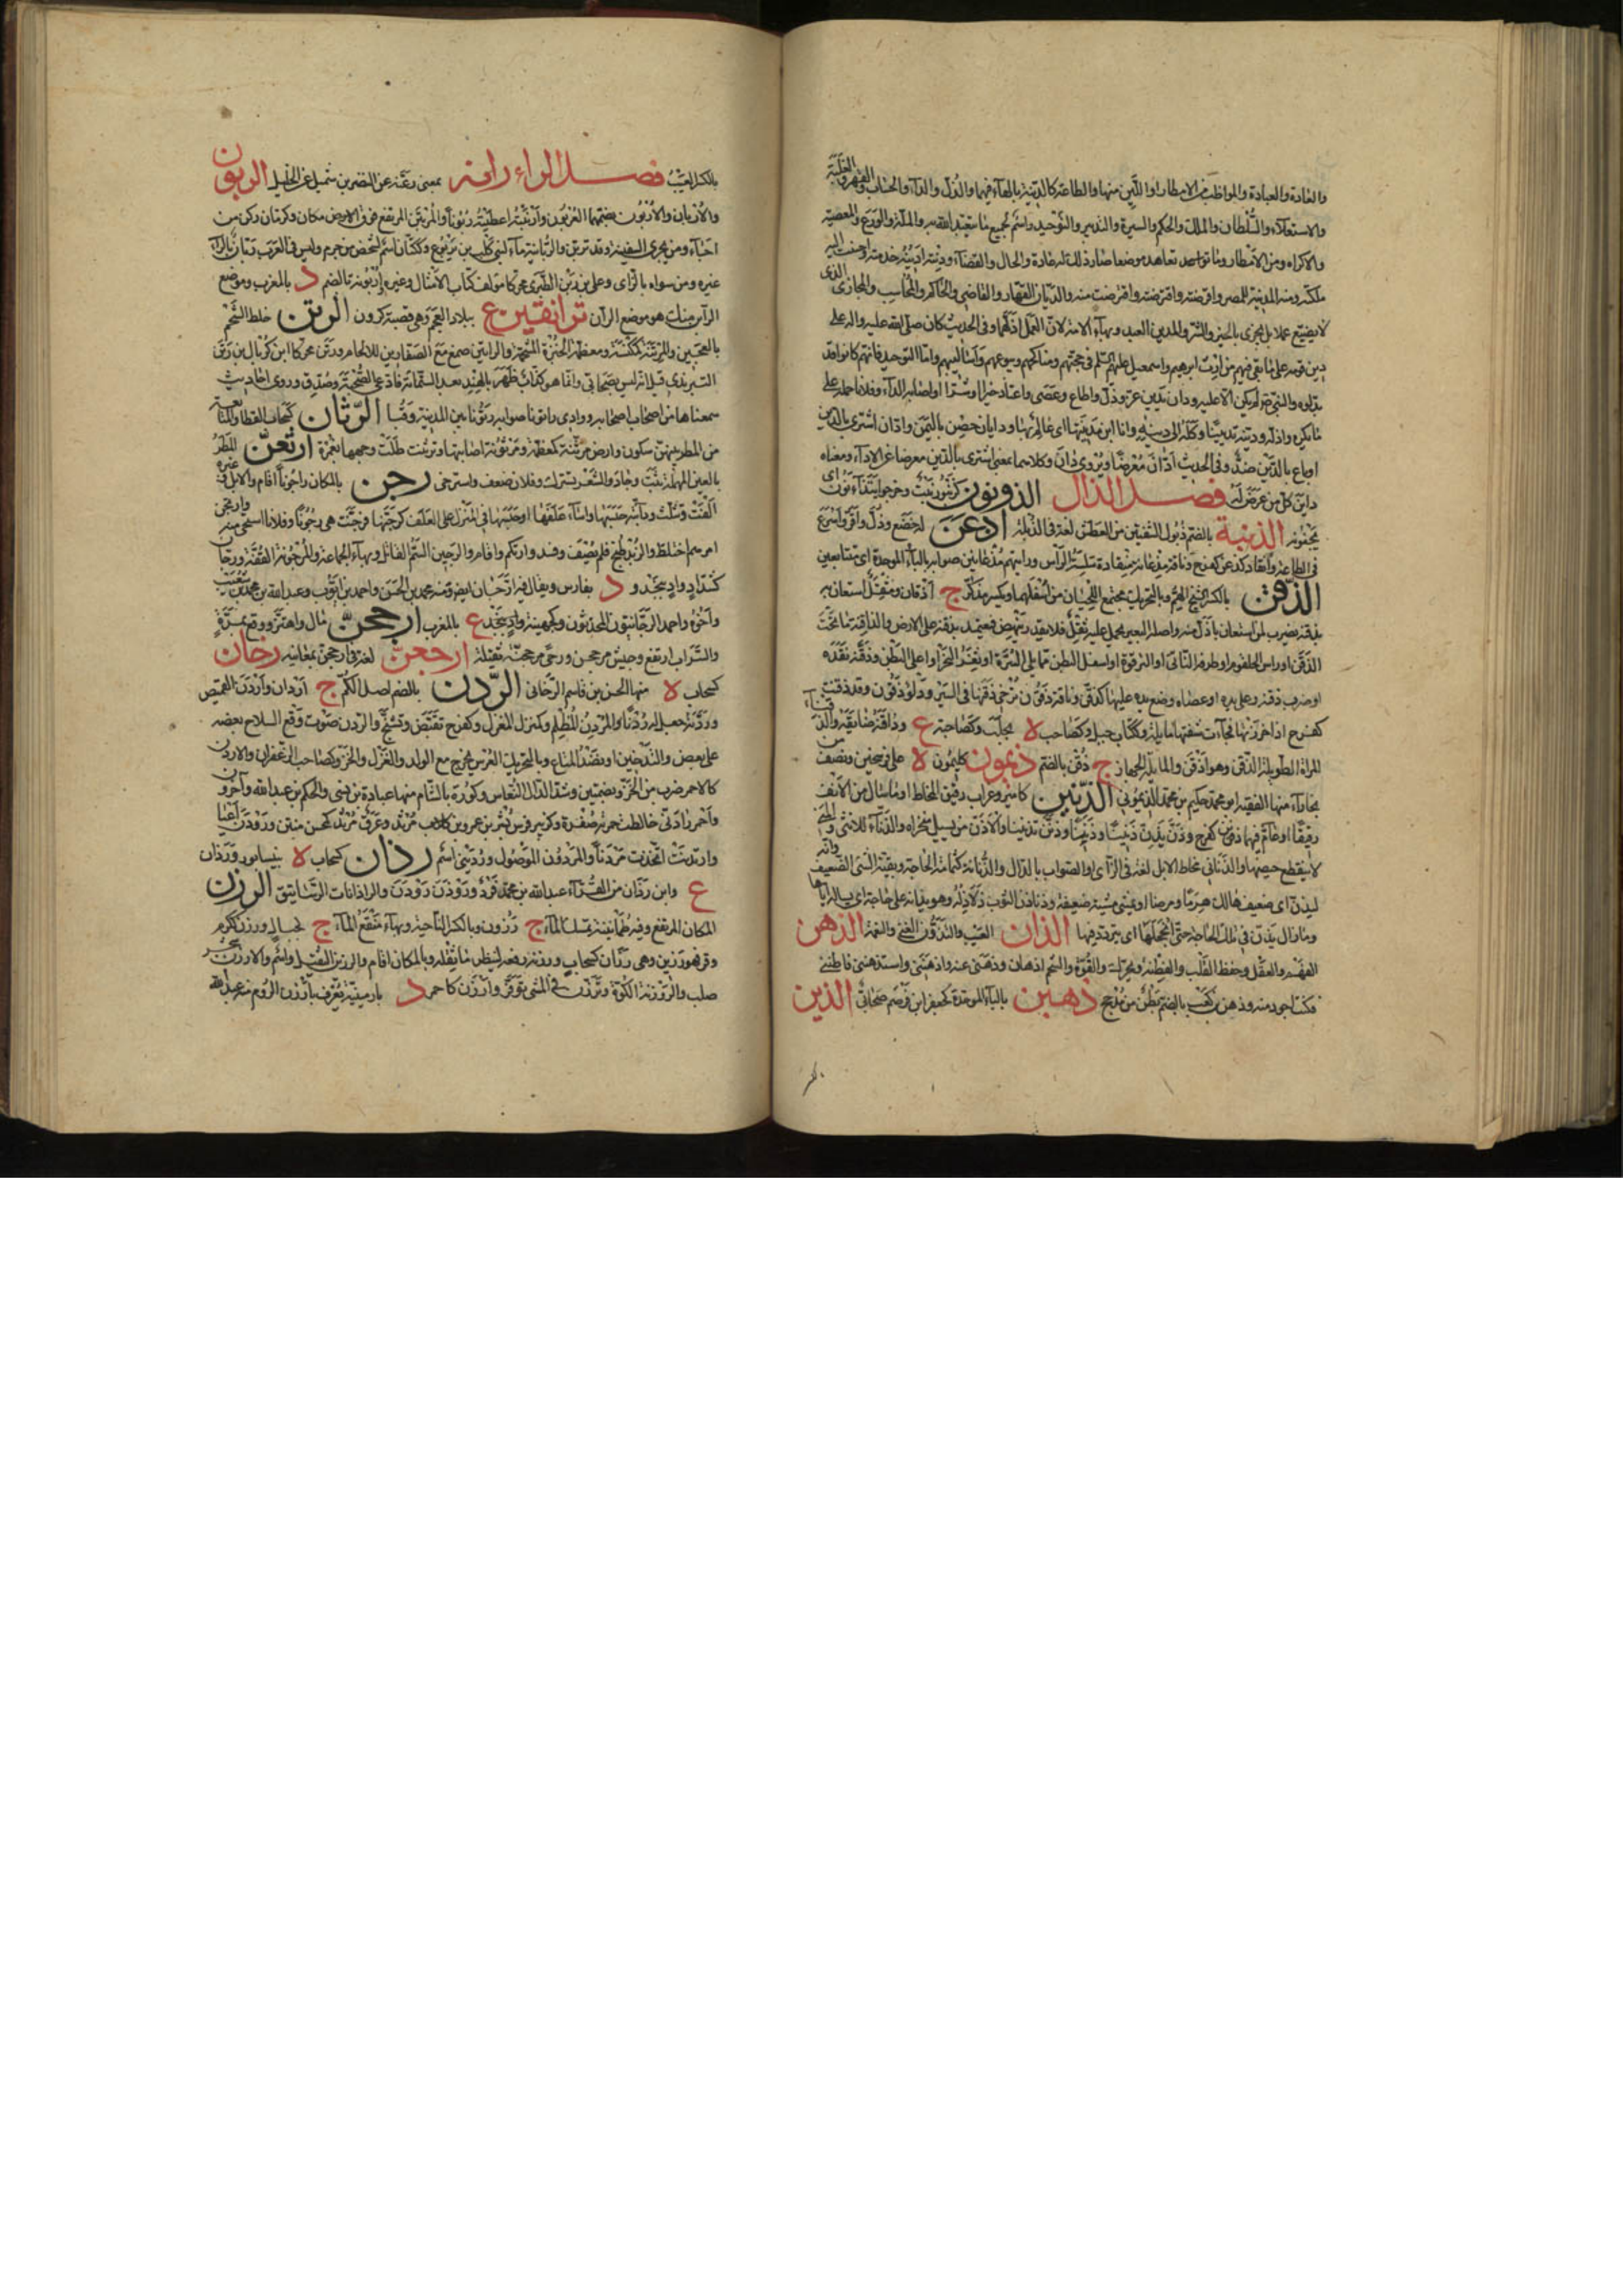 والعادة والعبادة والمواظب من الامطار او اللين منها والطاعة كالدينة بالهاء فيهما والذل والداء والحساب والقهر والغلبة
والاستعلاء والسلطان والملك والحكم والسيرة والتدبير والتوحيد واسم لجميع ما يتعبد الله به والملة والورع والمعصية
والاكراه ومن الامطار وما تواصد تعاهد موضعا صار ذلك له عادة والحال والقضاء ودنته ادينه خدمته واحسنت اليه
ملكته ومنه المدينة للمصر واقرضته واقترضت منه والديان القهار والقاضي والحاكم والمحاسب والمجازي الذي
لا يضيع عملا بل يجزي بالخير والشر والمدين العبد وبهاء الامة لان العمل اذلهما وفي الحديث كان صلى الله عليه واله على
دين قومه على ما بقي فيهم من ارث ابرهيم واسمعيل عليهم السلم في حجهم ومناكحهم وبيوعهم واساليبهم واما التوحيد فانهم كانوا قد
بدلوه والنبي لم يكن الا عليه ودان يدين عز وذل واطاع وعصى واعتاد خيرا او شرا واصابه الداء وفلانا حمله على
ما يكره واذله ودينه تديينا وكله الى دينه وانا ابن مدينتها اي عالم بها ودايان حصن باليمن وادان اشترى بالدين
او باع بالدين ضد وفي الحديث ادان معرضا ويروى دان وكلاهما بمعنى اشترى بالدين معرضا عن الاداء ومعناه
داين كل من عرض له فصل الذال الذونون كزنبور نبت وخرجوا يتذأنون اي
يجنونه الذبنة بالضم ذبول الشفتين من العطش لغة في الذبلة اذعن له خضع وذل واقر واسرع
في الطاعة وانقاد كذعن كفرح وناقة مذعان منقادة سلسة الراس ورايتهم مذعانين صوابه بالباء الموحدة اي متتابعين
الذقن بالكسر الشيخ الهم وبالتحريك مجتمع اللحيين من اسفلهما ويكسر مذكر ج اذقان ومثقل استعان به
بذقنه يضرب لمن استعان باذل منه واصله البعير يحمل عليه ثقل فلا يقدر ينهض فيعتمد بذقنه على الارض والذاقنة ما تحت
الذقن او راس الحلقوم او طرفه الناتئ او الترقوة او اسفل البطن مما يلي السرة او ثغرة النحر او اعلى البطن وذقنه نقده
او ضرب ذقنه وعلى يده او عصاه وضع يده عليها كذقن وناقة ذقون ترخي ذقنها في السير ودلو ذقون وقد ذقنت
كفرح اذا خرزتها فجاءت شفتها مايلة وككتاب جبل وكصاحب لا بحلب وكصاحبة ع وذاقنه ضايقه والذقناء من
المراة الطويلة الذقن وهو اذقن والمايلة الجهاز ج ذقن بالضم ذيمون كليمون لا على فرسخين ونصف
بخاراء منها الفقيه ابو محمد حكيم بن محمد الذيموني الذنين كامير وغراب رقيق المخاط او ما سال من الانف
رقيقا او عام فيهما ذنن كفرح وذن يذن ذنينا وذننا وذنن تذنينا والاذن من يسيل منخراه والذناء للانثى والتي
لا ينقطع حيضها والذناني مخاط الابل لغة في الزاي او الصواب بالدال والذنانة كثمامة الحاجة وبقية الشئ الضعيف وانه
ليذن اي ضعيف هالك هرما ومرضا او يمشي مشية ضعيفة وذناذن الثوب ذلاذله وهو يذانه على حاجة اي يساله اياها
وما زال يذن في تلك الحاجة حتى انجحها اي يتردد فيها الذان العيب والتذون الغنى والنعمة الذهن
الفهم والعقل وحفظ القلب والفطنة ويحرك والقوة والشحم ج اذهان وذهنني عنه واذهنني واستذهنني فاطنني
فكنت اجود منه وذهن بن كعب بالضم بطن من مذحج ذهبن بالباء الموحدة كجعفر ابن قرضم صحابي الذين
بالكسر العيب فصل الراء رانة بمعنى رعنه عن النضر بن شميل عن الخليل الربون
والاربان والاربون بضمهما العربون واربنته اعطيته ربونا والمرتبن المرتفع فوق الارض مكان وكرمان ركن من
اجاء ومن يجري السفينة وقد تربن والربانية ماء لبني كليب بن يربوع وككتان اسم لشخص من جرم وليس في العرب ربان بالراء
غيره ومن سواه بالزاي وعلي بن ربن الطبري محركا مؤلف كتاب الامثال وغيره واربونة بالضم د بالمغرب وموضع
الران منك هو موضع الران ترانقين ع ببلاد العجم وهي قصبة كرون الرتن خلط الشحم
بالعجين والمرتنة كمكنسة ومعظمة الخبزة المشحمة والراتين صمغ مع الصفارين للالحام ورتن محركا ابن كربال بن رتن
التبرندي قيل انه ليس بصحابي وانما هو كذاب ظهر بالهند بعد الستمائة فادعى الصحبة وصدق وروى احاديث
سمعناها من اصحاب اصحابه وواوي راتونا صوابه رتونا بين المدينة وقبا الرثان كسحاب القطار المتتابعة
من المطر بينهن سكون وارض مرثنة كمعظمة ومرثونة اصابتها وترثنت طلت وجهها بغمرة ارثعن المطر
بالعين المهملة ثبت وجاد والشعر تشرك وفلان ضعف واسترخى رجن بالمكان رجونا اقام والابل وغيره
الفت وثلث ودابته حبسها واساء علفها او حبسها في المنزل على العلف كرجنها فرجنت هي رجونا وفلانا استحيى منه وارتجن
امرهم اختلط والزبد طبخ فلم يصف وفسد وارتكم واقام والرجين السم القاتل وبهاء الجماعة والمرجونة القفة ورجان
كشداد واد بنجد و د بفارس ويقال فيه ارجان ايضا منه محمد بن الحسن واحمد بن ايوب وعبد الله بن محمد بن شعيب
واخوه واحمد الرجانيون المحدثون وكجهينة واد بنجد ع بالمغرب ارجحن مال واهتز ووقع بمرة
والسراب ارتفع وجيش مرجحن ورحى مرجحنة ثقيلة ارجعن لغة في ارجحن بمعانيه رخان
كسحاب لا منها الحسن بن قاسم الرخاني الردن بالضم اصل الكم ج اردان واردن القميص
وردنه جعل له ردنا والمردن للمظلم وكمنبر المغزل وكفرح تقبض وتشنج والردن صوت وقع السلاح بعضه
على بعض والتدخين او نضد المتاع وبالتحريك الغرس يخرج مع الولد والغزل والخز وكصاحب الزعفران والاردن
كالاحمر ضرب من الخز وبضمتين وشد الدال النعاس وكورة بالشام منها عبادة بن نسي والحكم بن عبد الله واخرون
واحمر رادني خالطت حمرته صفرة وكزبير فرس بشر بن عمرو بن كلب مردث وعرق مردن كمحسن منتن وردن اعيا
وارتدنت اتخذت مردنا والمردون الموصول ورديني اسم رذان كسحاب لا بنيسابور وردان
ع وابن رذان من القراء عبد الله بن محمد فرد ورذذن رذوذن والراذانات الرساتيق الرزن
المكان المرتفع وفيه طمأنينة يمسك الماء ج رزون وبالكسر الناحية وبهاء منقع الماء ج كجبال ورزن ككرم
وقر فهو رزين وهي رزان كسحاب ورزنه رفعه لينظر ما ثقله وبالمكان اقام والرزين الثقيل واسم والارزن شجر
صلب والروزنة الكوة وترزن في الشئ توقر وارزن كاحمر د بارمينية يعرف بارزن الروم منه عبد الله